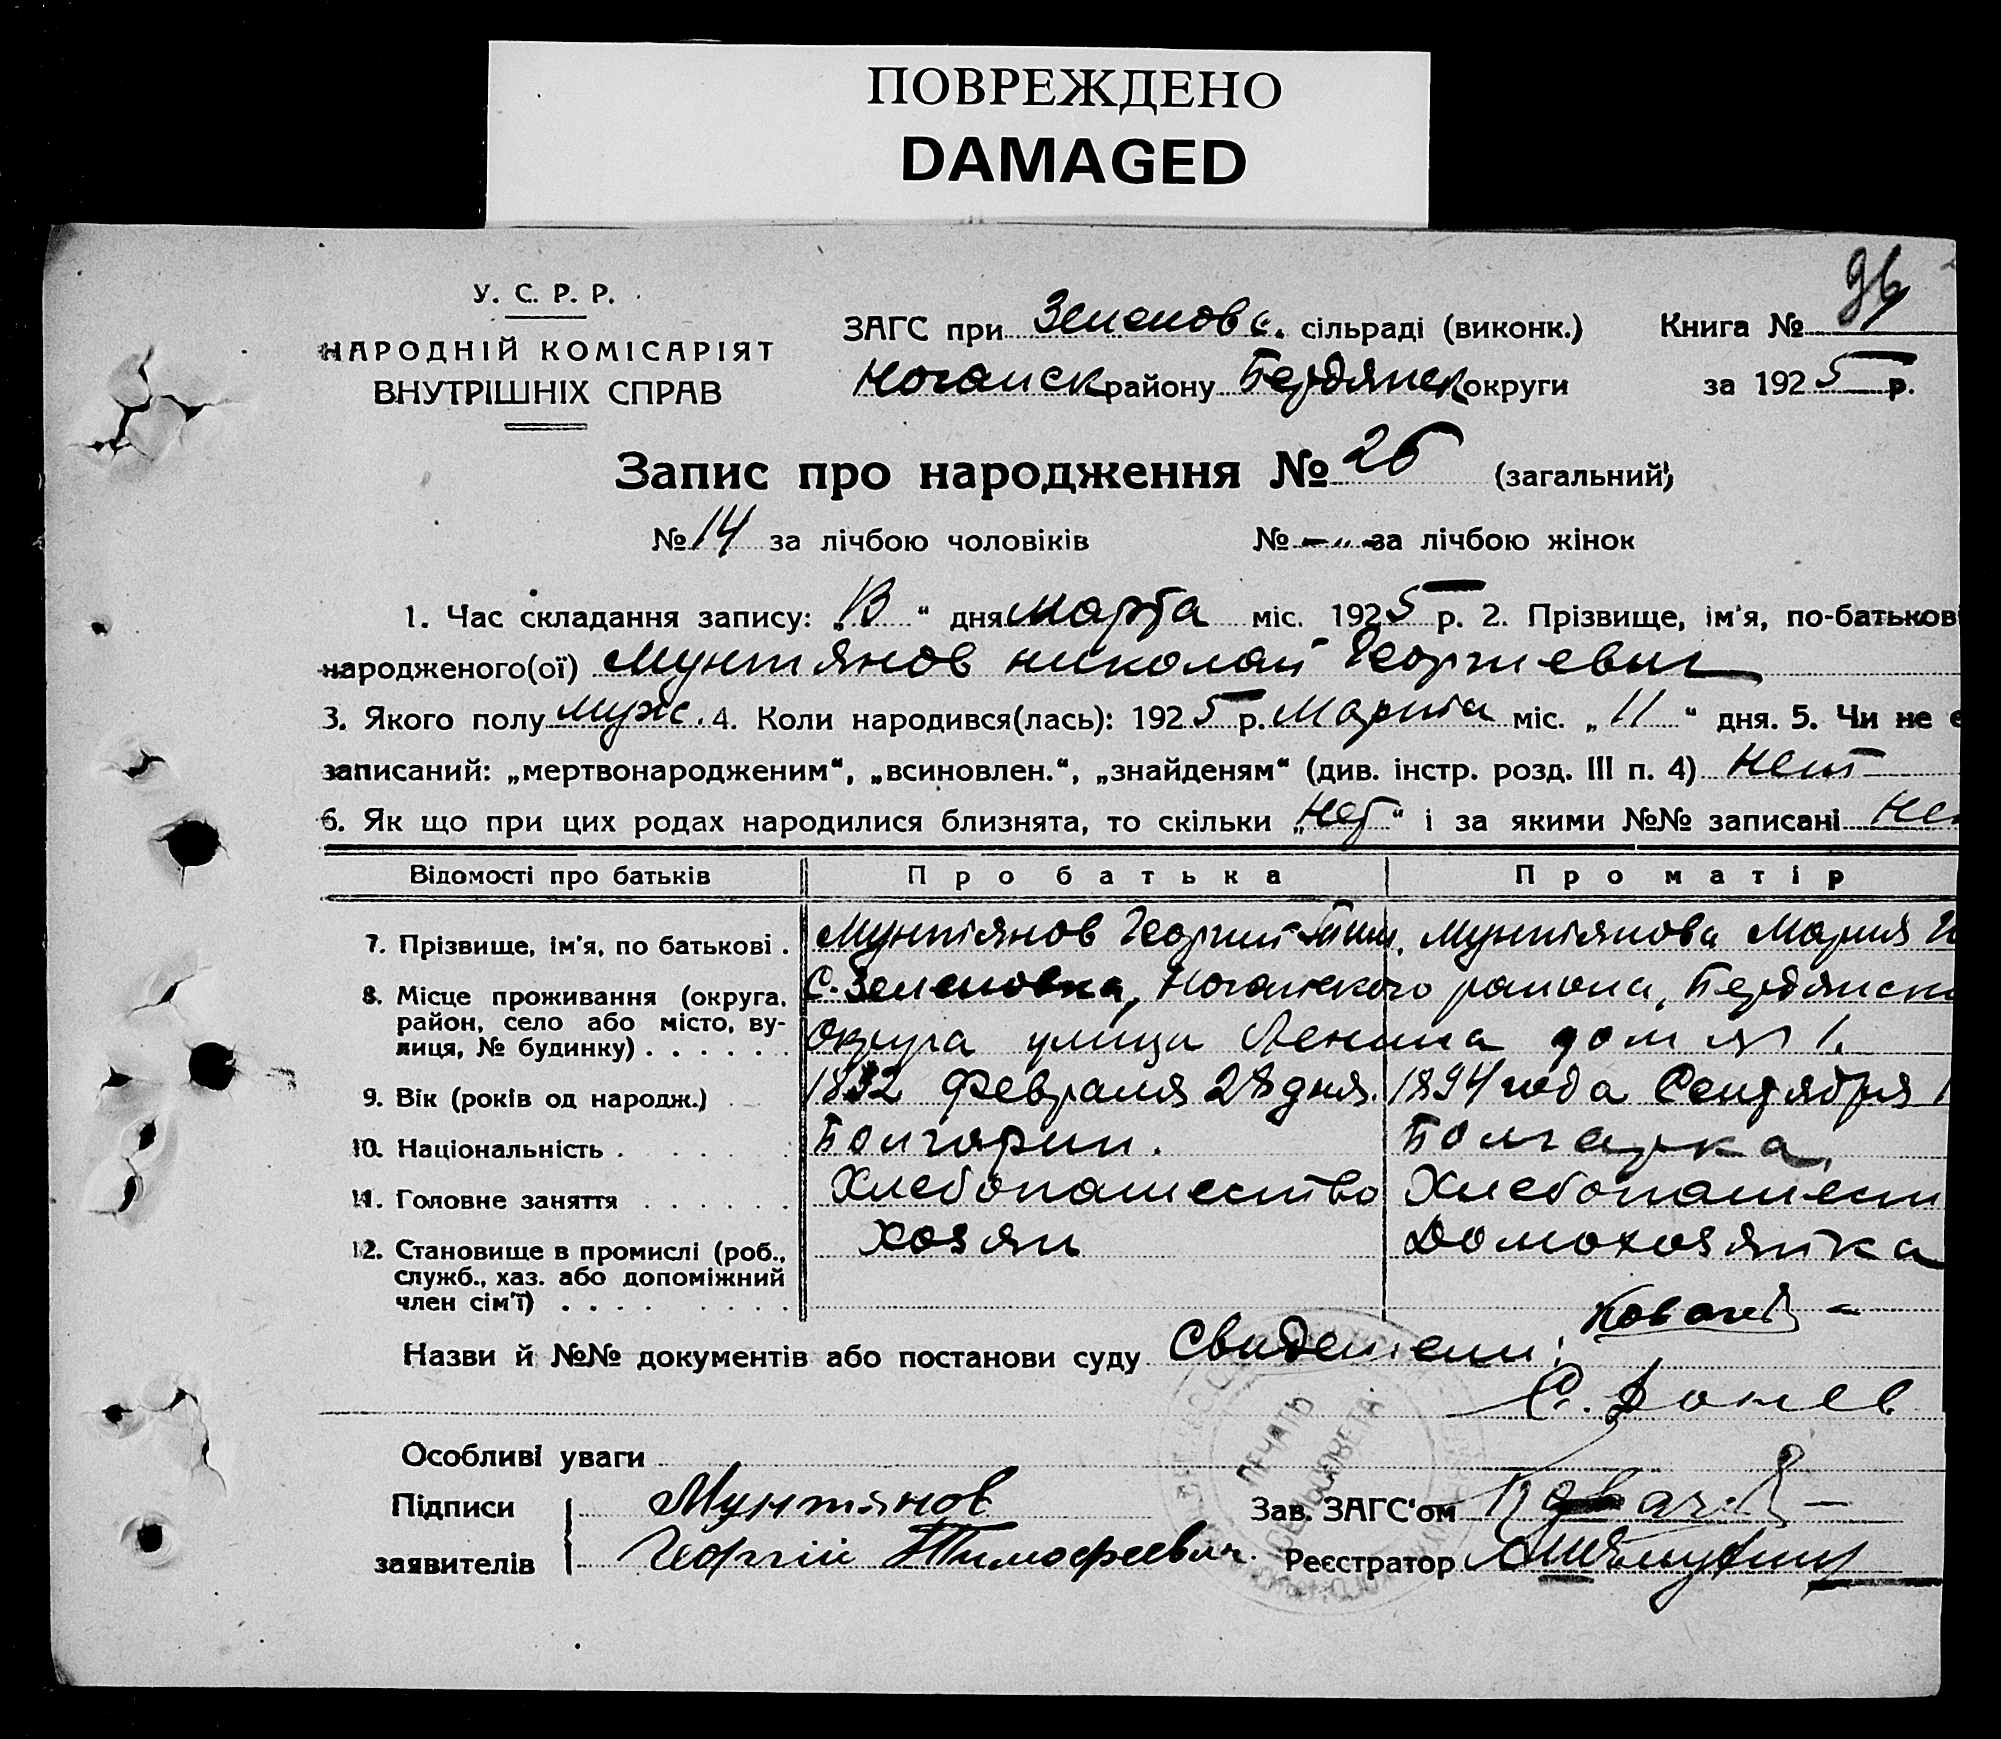 ПОВРЕЖДЕНО
DAMAGED
У. С. Р. Р.
НАРОДНІЙ КОМІСАРІЯТ
ВНУТРІШНІХ СПРАВ
ЗАГС при Зеленовс. сільраді (виконк.) Книга №
Ногайск району Бердянск округи за 1925 р.
Запис про народження № 25 (загальний)
№ 14 за лічбою чоловіків № —"— за лічбою жінок
1. Час складання запису: „13" дня марта міс. 1925 р. 2. Прізвище, ім'я, по-батькові
народженого(ої) Мунтянов Николай Георгиевич
3. Якого полу муж. 4. Коли народився(лась): 1925 р. Марта міс. „11" дня. 5. Чи не є
записаний: „мертвонародженим", „всиновлен.", „знайденям" (див. інстр. розд. III п. 4) Нет
6. Як що при цих родах народилися близнята, то скільки „Нет" і за якими №№ записані Не
Відомості про батьків Про батька Про матір
7. Прізвище, ім'я, по батькові . Мунтянов Георгий Тим. Мунтянова Мария
8. Місце проживання (округа, район, село або місто, вулиця, № будинку) . . . . . . С. Зеленовка, Ногайского района, Бердянск
Округа улица Ленина дом № 1.
9. Вік (років од народж.) 1892 Февраля 28 дня. 1894 года Сентября 1
10. Національність . Болгарин. Болгарка,
11. Головне заняття . . . . . . Хлебопашество Хлебопашест
12. Становище в промислі (роб., служб., хаз. або допоміжний член сім'ї) . . . . Хозяин Домохозяйка
Назви й №№ документів або постанови суду Свидетели: Ковачев
С. Донев
Особливі уваги
Підписи Мунтянов Зав. ЗАГС'ом Ковачев
заявителів Георгий Тимофеевич. Реєстратор
ПЕЧАТЬ
СЕЛЬСОВЕТА